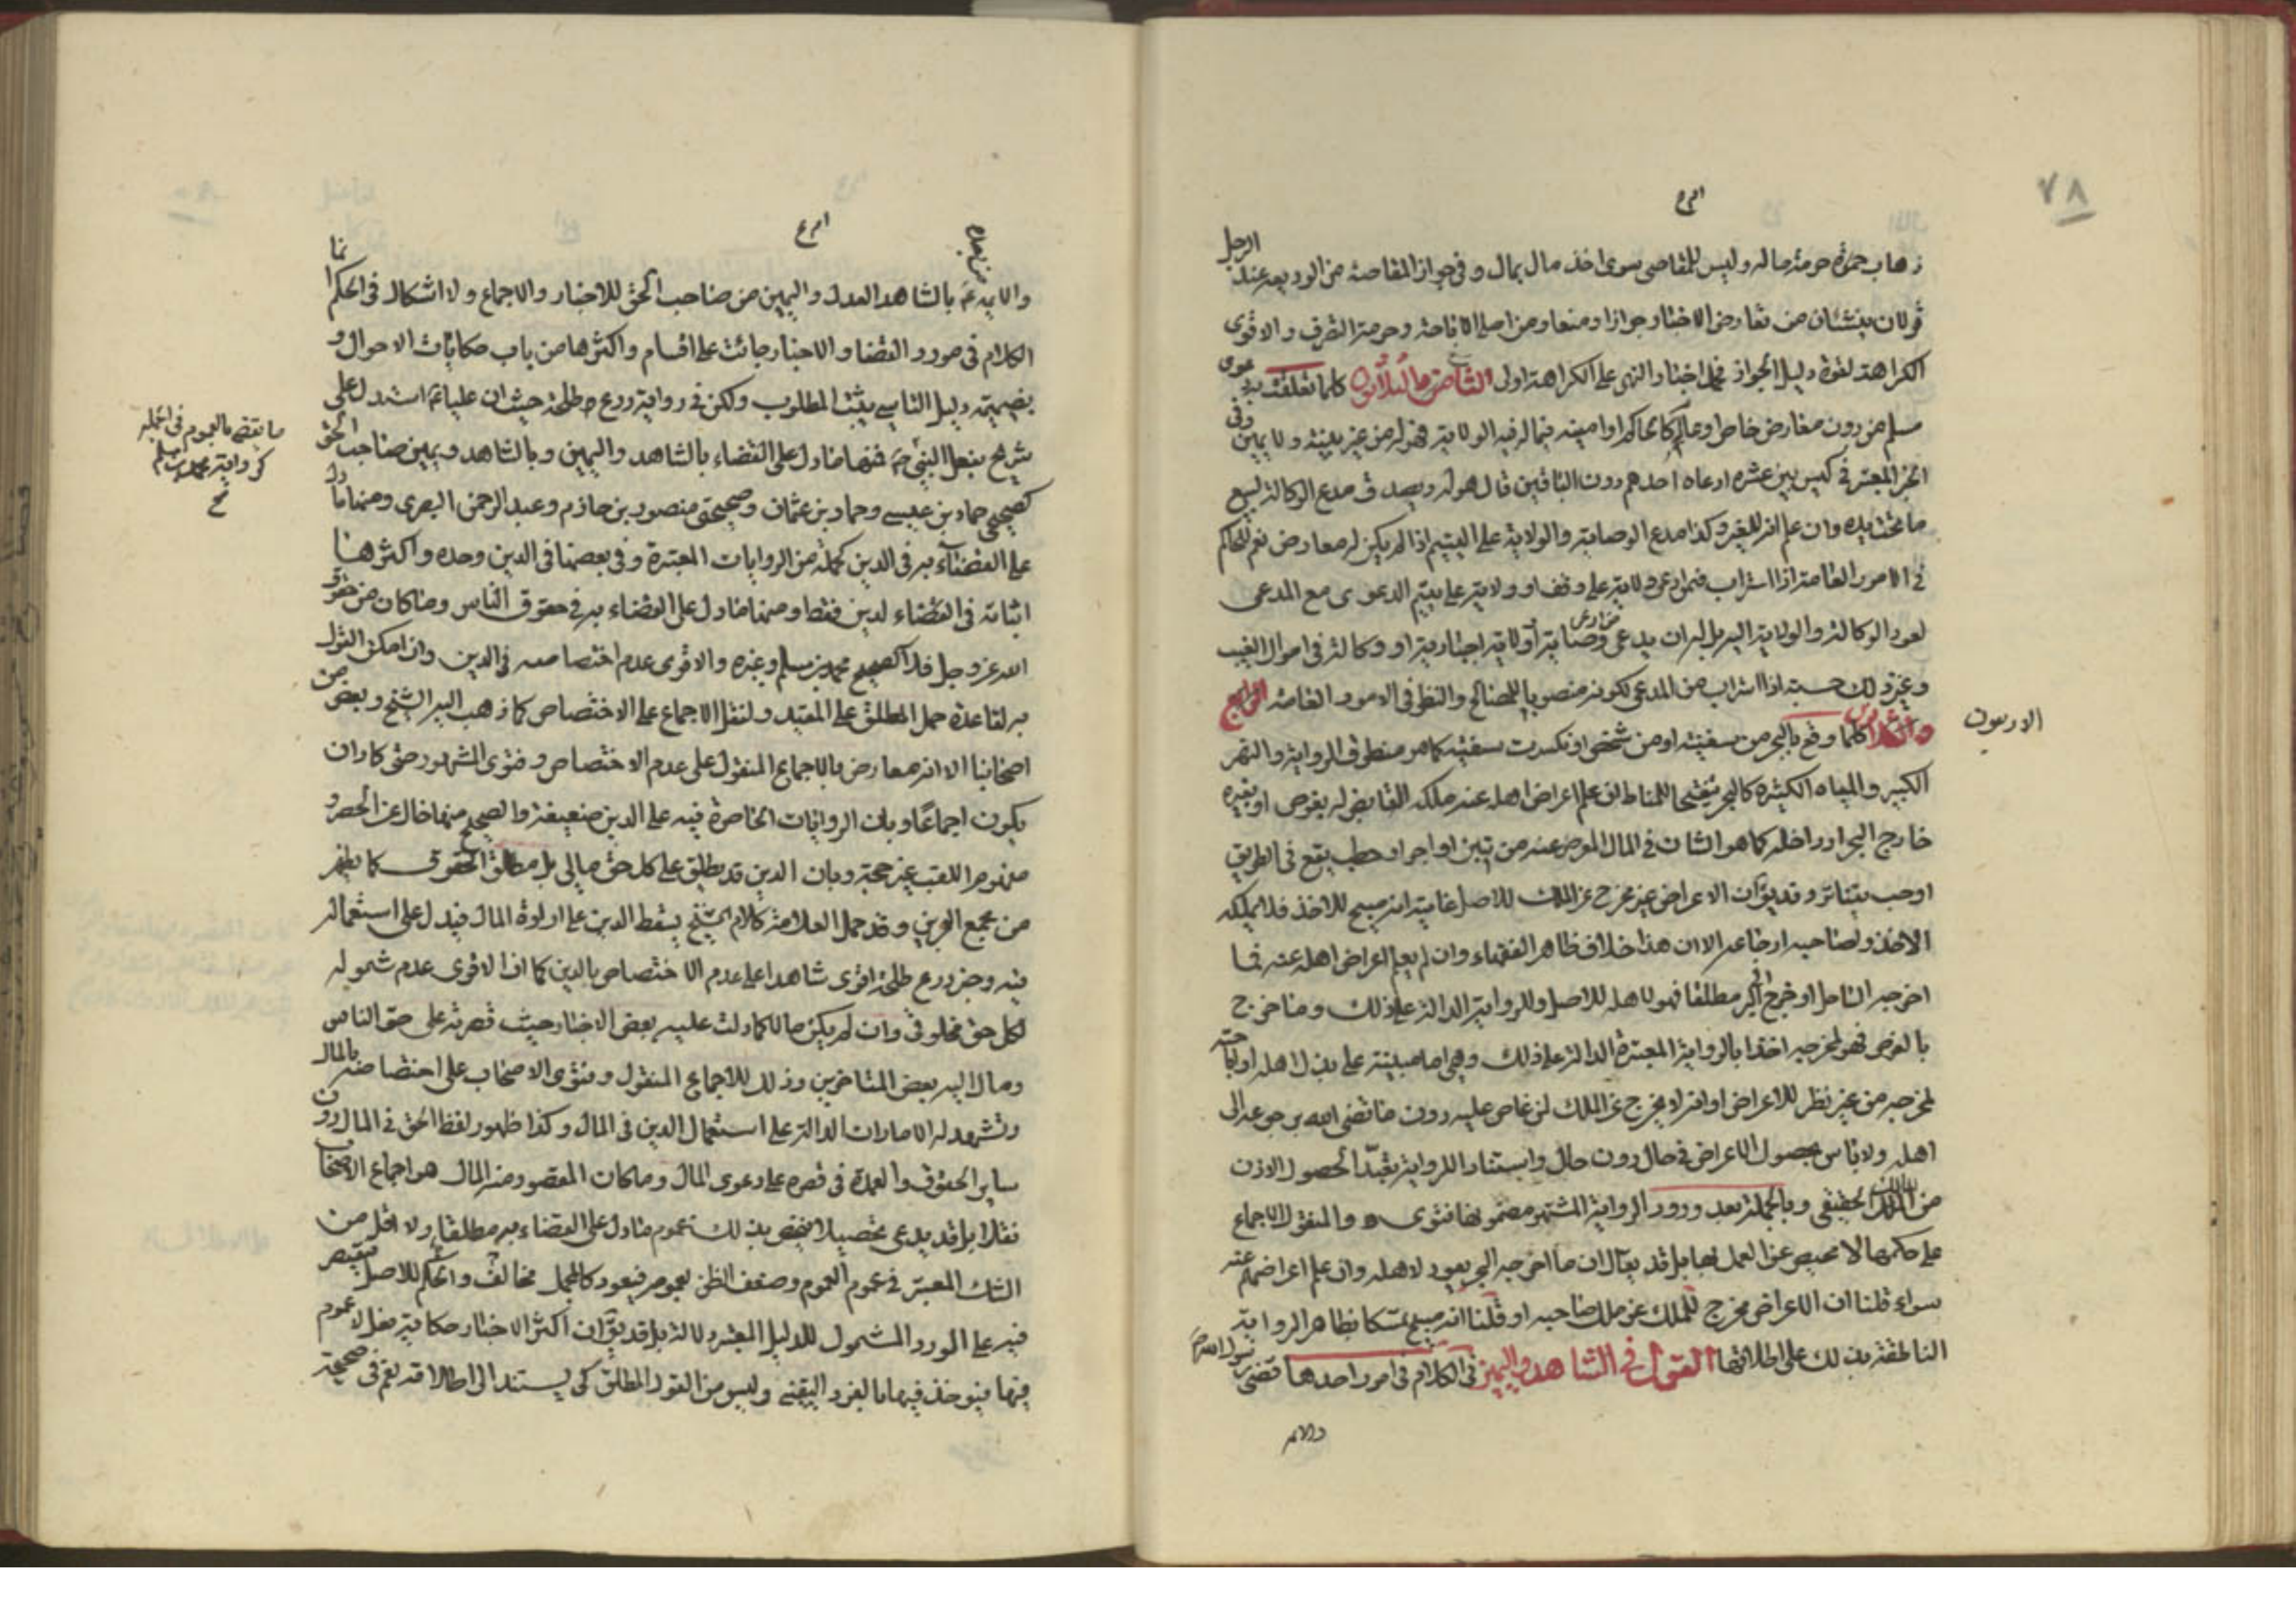 ٧٨
الرجل
ذهاب حرمة ماله وليس للمقاصى سوى اخذ مال بمال وفى جواز المقاصة من الوديعة عنده
قولان ينشئان من تعارض الاخبار جوازا ومنعا ومن اصل الاباحة وحرمة التصرف والاقوى
الكراهة لقوة دليل الجواز فحمل اخبار النهى على الكراهة اولى الثامن والثلاثون كلما تعلقت به دعوى
مسلم من دون معارض خاص او عام كالحاكم او امينه فيما له فيه الولاية فهو له من غير بينة ولا يمين وفى
الخبر المعتبر فى كيس بين عشرة ادعاه احدهم دون الباقين قال هو له ويصدق مدع الوكالة لبيع
ما تحت يده وان علم انه للغير وكذا مدع الوصاية والولاية على اليتيم اذا لم يكن له معارض نعم للحاكم
فى الامور العامة اذا استراب فيمن ادعى ولاية على وقف او ولاية على يتيم الدعوى مع المدعى
لعود الوكالة والولاية اليه بل له ان يدعى وصاية او ولاية اجبارية او وكالة فى اموال الغيب
وغير ذلك حسبة اذا استراب من المدعى لكونه منصوبا للمصالح والنظر فى الامور العامة الرابع
والثلاثون كلما وقع بالبحر من سفينة او من شخص او نكسرت سفينة كما هو منطوق الرواية والنهر
الاربعون
الكبير والمياه الكثيرة كالبحر تنقيحا للمناط فان علم اعراض اهله عنه ملكه القابض له بغوص او بغيره
خارج البحر او داخله كما هو الشان فى المال المعرض عنه من تبن او اجر او حطب يقع فى الطريق
او حب يتناثر وقد يق ان الاعراض غير مخرج عن الملك للاصل غايته انه مبيح للاخذ فلا يملكه
الاخذ ولصاحبه ارجاعه الا ان هذا خلاف ظاهر الفقهاء وان لم يعلم اعراض اهله عنه فما
اخرجه الساحل او خرج اليه مطلقا فهو لاهله للاصل وللرواية الدالة على ذلك وما خرج
بالغوص فهو لمخرجه اخذا بالرواية المعتبرة الدالة على ذلك وهى اما مبينة على بذل اهله اولا
لمخرجه من غير نظر للاعراض او انه لا يخرج عن الملك لمن غاص عليه دون ما قضى الله برجوعه الى
اهله ولا باس بحصول الاعراض فى حال دون حال واستنادا للرواية تعبدا لحصول الاذن
من المالك الحقيقى وبالجملة بعد ورود الرواية المشتهر مضمونها فتوى والمنقول الاجماع
على حكمها لا محيص عن العمل بها بل قد يقال ان ما اخرجه البحر يعود لاهله وان علم اعراضهم عنه
سواء قلنا ان الاعراض مخرج للملك عن ملك صاحبه او قلنا انه مبيح تمسكا بظاهر الرواية
الناطقة بذلك على اطلاقها القول فى الشاهد واليمين فى الكلام فى امور احدها قضى رسول الله ص
والائمه
والائمة ع بالشاهد العدل واليمين من صاحب الحق للاخبار والاجماع ولا اشكال فى الحكم انما
الكلام فى مورد القضاء والاخبار جائت على اقسام واكثرها من باب حكايات الاحوال و
بضميمة دليل التاسى يثبت المطلوب ولكن فى رواية درع طلحة حيث ان عليا ع استدل على
شريح بفعل النبى ص فمنها ما دل على القضاء بالشاهد واليمين وبالشاهد ويمين صاحب الحق
ما يقضى بالعموم فى الجملة
كرواية محمد بن مسلم
صح
كصحيحى حماد بن عيسى وحماد بن عثمان وصحيحتى منصور بن حازم وعبد الرحمن البصرى ومنها ما دل
على القضاء به فى الدين كجملة من الروايات المعتبرة وفى بعضها فى الدين وحده واكثرها
اثباته فى القضاء لدين فقط ومنها ما دل على القضاء به فى حقوق الناس وما كان من حقوق
الله عز وجل فلا كصحيح محمد بن مسلم وغيره والاقوى عدم اختصاصه فى الدين وان امكن القول
به لقاعدة حمل المطلق على المقيد ولنقل الاجماع على الاختصاص كما ذهب اليه الشيخ وبعض من
اصحابنا الا انه معارض بالاجماع المنقول على عدم الاختصاص وفتوى المشهور حتى كاد ان
يكون اجماعا وبان الروايات الحاصرة فيه على الدين ضعيفة والصحيح منها خال عن الحصر و
مفهوم اللقب غير حجة وبان الدين قد يطلق على كل حق مالى بل مطلق الحقوق كما يظهر
من مجمع البحرين وقد حمل العلامة كلام الشيخ بسقط الدين على ارادة المال فيدل على استعماله
فيه وخبر درع طلحة اقوى شاهدا على عدم الاختصاص بالدين كما ان الاقوى عدم شموله
لكل حق مخلوقى وان لم يكن مالا كما دلت عليه بعض الاخبار حيث قصرته على حق الناس
ومال اليه بعض المتاخرين وذلك للاجماع المنقول وفتوى الاصحاب على اختصاصه بالمال
وتشهد له الامارات الدالة على استعمال الدين فى المال وكذا ظهور لفظ الحق فى المال دون
ساير الحقوق والعمدة فى قصره على دعوى المال وما كان المقصود منه المال هو اجماع الاصحاب
نقلا بل قد يدعى تحصيلا فيخص بذلك عموم ما دل على القضاء به مطلقا ولا اقل من
الشك المعتبر فى عموم العموم وضعف الظن بعمومه فيعود كالمجمل مخالف والحكم للاصل فيقتصر
فيه على المورد المشمول للدليل المعتبر دلالة بل قد يق ان اكثر الاخبار حكاية فعل لا عموم
فيها فيوخذ فيها بالفرد اليقينى وليس من القول المطلق كى يستند الى اطلاقه نعم فى صحيحة